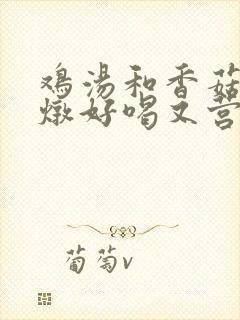 鸡汤和香菇
燉好喝又营
葡萄v